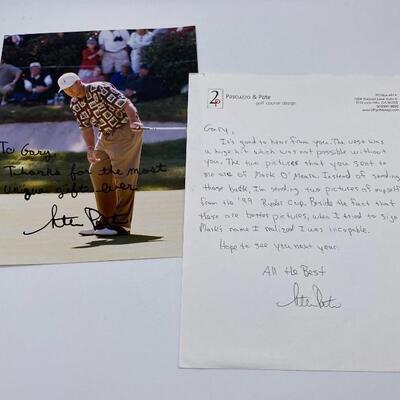 To Gary,
Thanks for the most
unique gift ever
Steve Pate
2P
Pascuzzo & Pate
golf course design
Gary,
It's good to hear from you. The vase was
a huge hit which was not possible without
you. The two pictures that you sent to
me are of Mark O'Meara. Instead of sending
those back, I'm sending two pictures of myself
from the '99 Ryder Cup. Beside the fact that
these are better pictures, when I tried to sign
Mark's name I realized I was incapable.
Hope to see you next year.
All the Best
Steve Pate